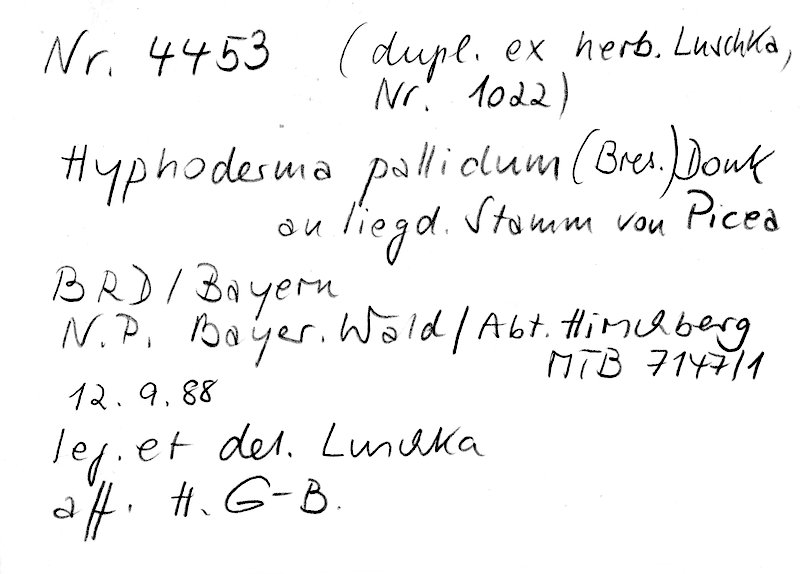 Nr. 4453 (dupl. ex herb. Luschka,
Nr. 1022)
Hyphoderma pallidum (Bres.) Donk
an liegd. Stamm von Picea
BRD / Bayern
N.P. Bayer. Wald / Abt. Hirschberg
MTB 7147/1
12. 9. 88
leg. et det. Luschka
aff. H. G-B.